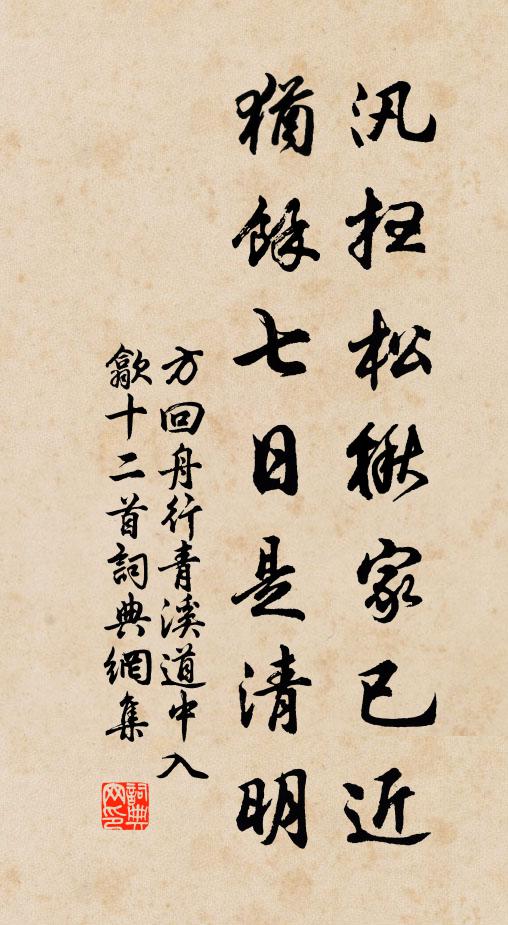 汛扫松楸家已近
猶餘七日是清明
方回舟行青溪道中入
歙十二首詞典網集
詞典网印